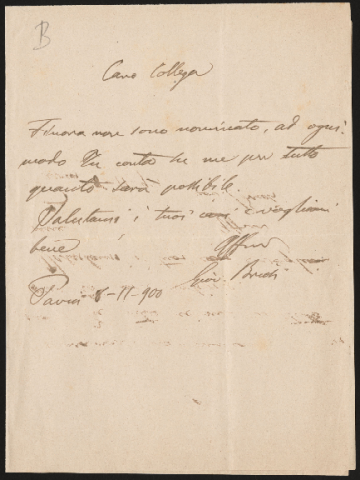 B
Caro Collega
Finora non sono nominato, ad ogni
modo Tu conta su me per tutto
quanto sarà possibile.
Salutami i tuoi cari e vogliami
bene
Giov. Bruchi
Pavia 8-11-900